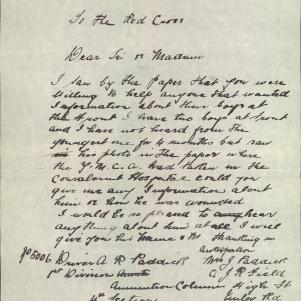 To the Red Cross
Dear Sir or Madam
I saw by the Paper that you were
willing to help anyone that wanted
Information about their boys at
the front I have two boys at front
and I have not heard from the
youngest one for 4 months but saw
his photo in the paper where
the Y.M.C.A had taken in the
Convalesent Hospital could you
give me any Information about
him or how he was wounded
I would be so pleased to hear
anything about him at all I will
give you his name & No thanking in
Antisipation
No 5006 Driver A R Paddick Mrs J Paddick
1st Division A J R Field
Ammunition Column High St
4th Section Rd